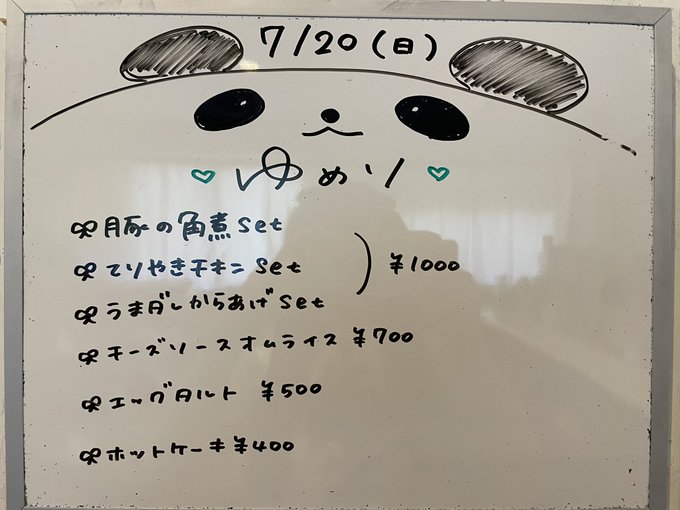 7/20(日)
♡ ゆめり ♡
豚の角煮set
てりやきチキンset
うまダレからあげset
¥1000
チーズソースオムライス ¥700
エッグタルト ¥500
ホットケーキ¥400